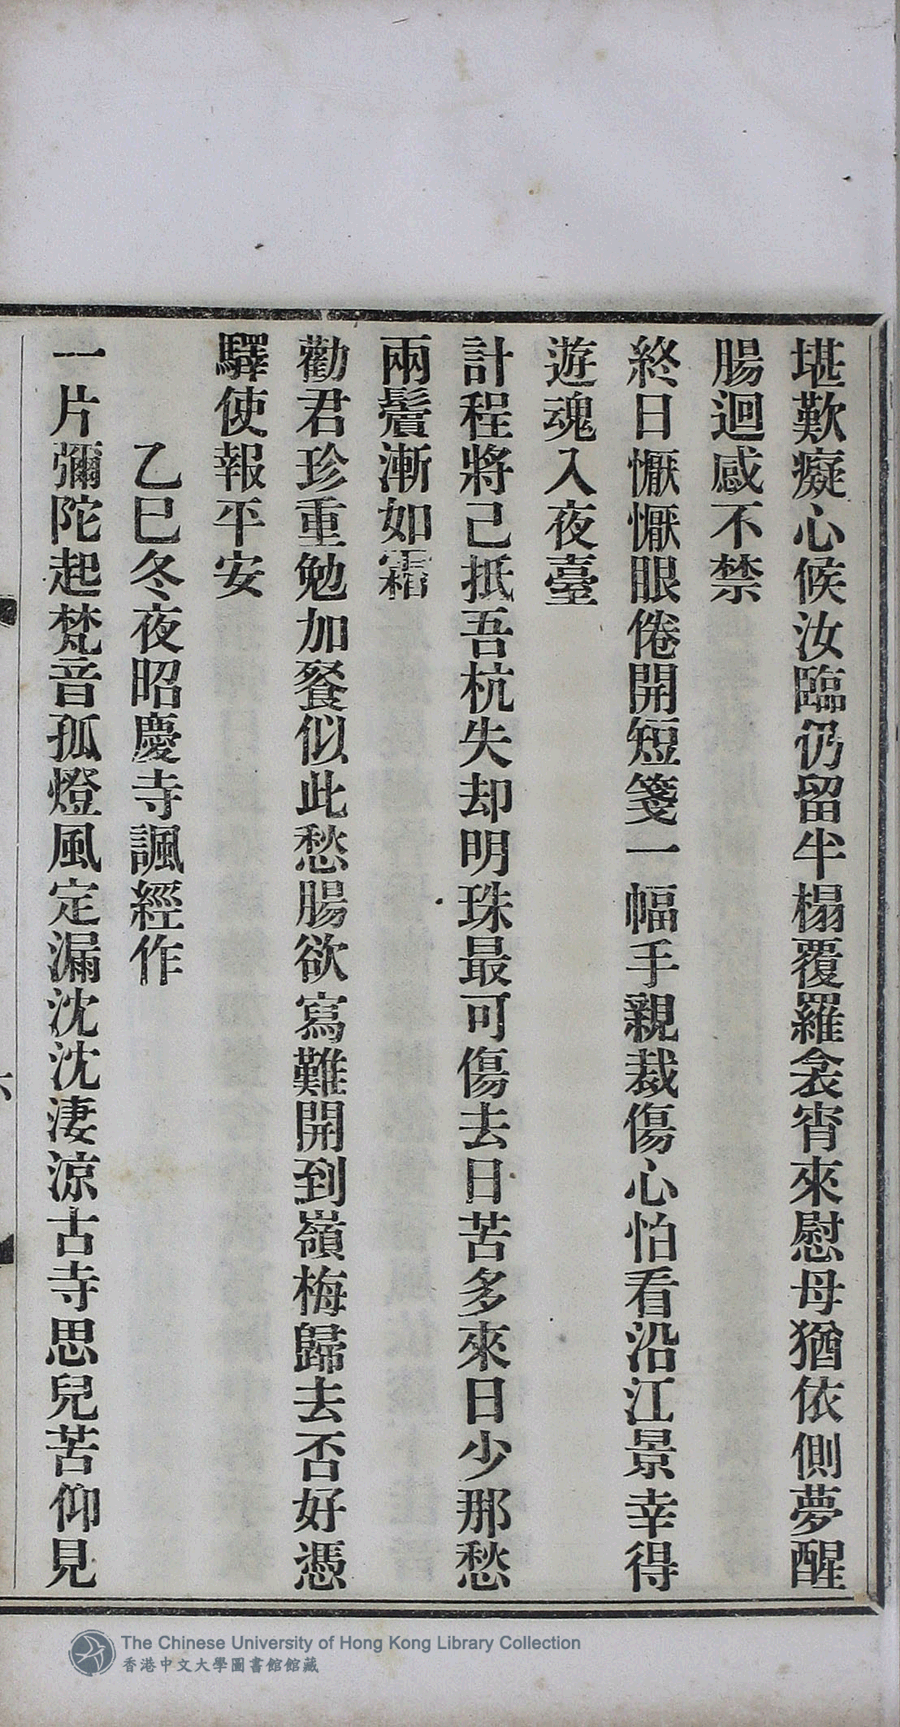 堪歎癡心候汝臨仍留半榻覆羅衾宵來慰母猶依側夢醒
腸迴感不禁
終日懨懨眼倦開短箋一幅手親裁傷心怕看沿江景幸得
遊魂入夜臺
計程將已抵吾杭失却明珠最可傷去日苦多來日少那愁
兩鬢漸如霜
勸君珍重勉加餐似此愁腸欲寫難開到嶺梅歸去否好憑
驛使報平安
乙巳冬夜昭慶寺諷經作
一片彌陀起梵音孤燈風定漏沈沈淒涼古寺思兒苦仰見
The Chinese University of Hong Kong Library Collection
香港中文大學圖書館館藏